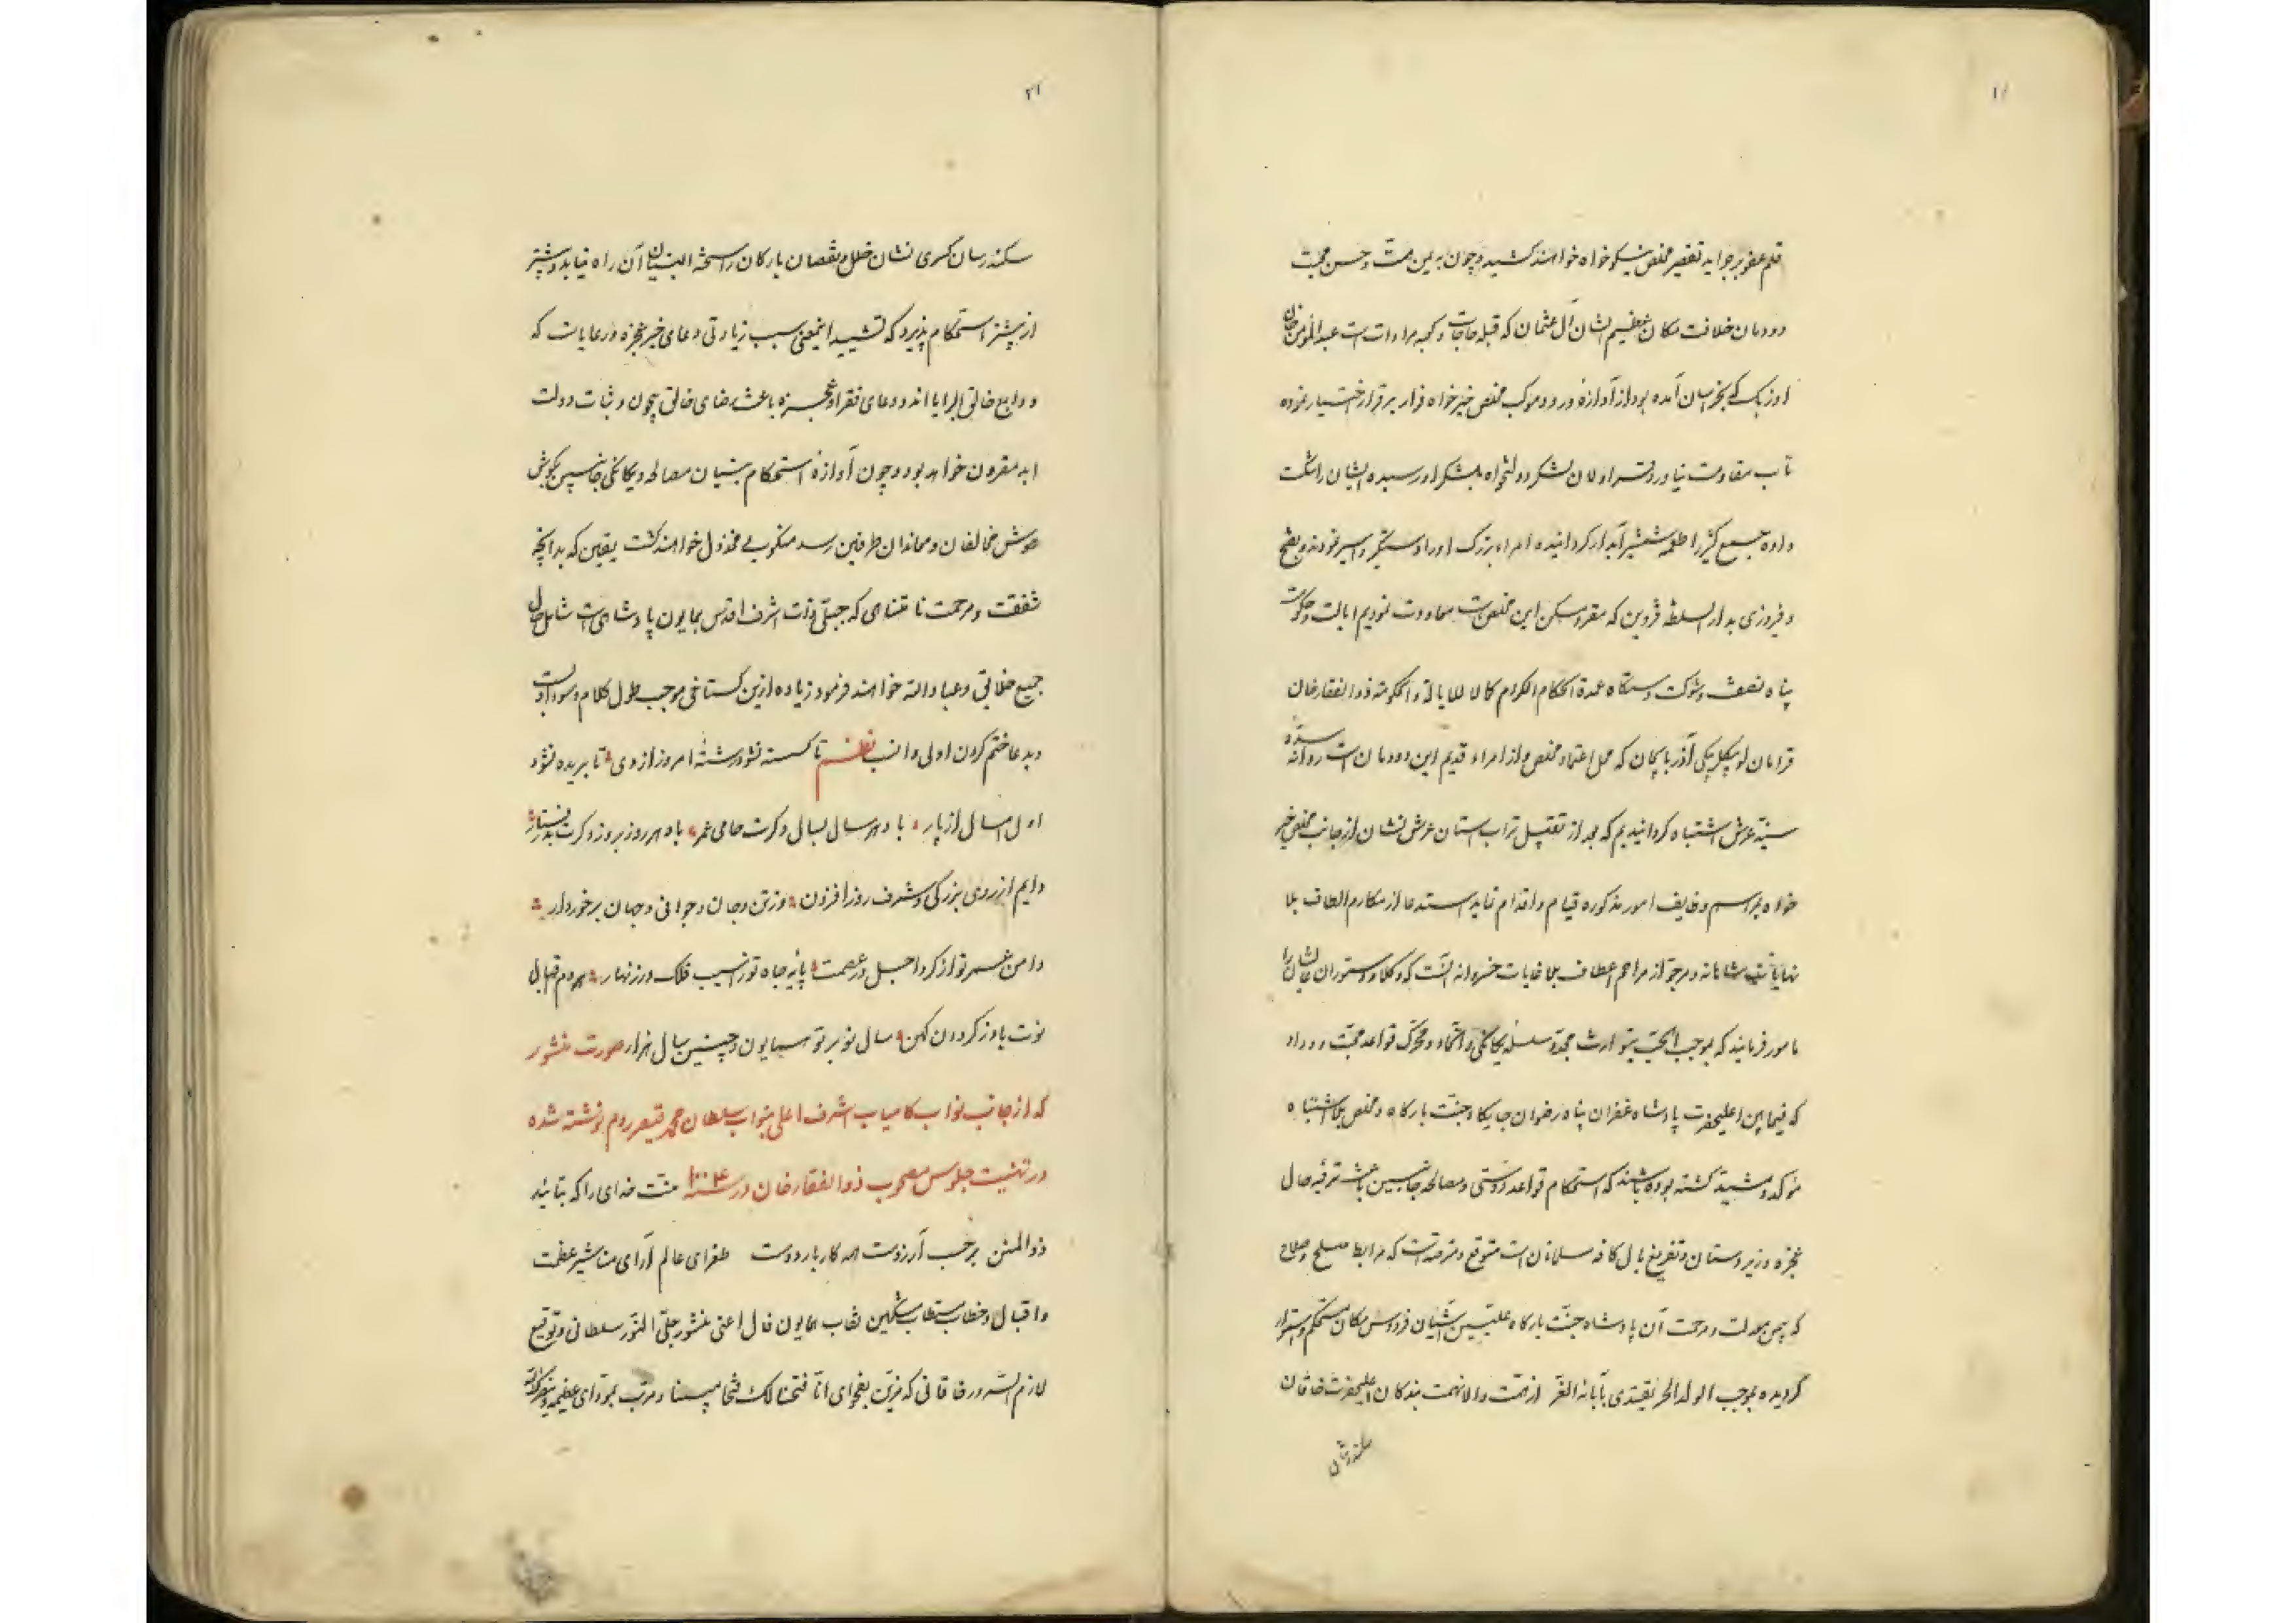 قلم عفو بر جراید تقصیر مخلص نیکو خواه خواهند کشید و چون به یمن همت و حسن محبت
دودمان خلافت مکان عظیم الشان آل عثمان که قبله حاجات و کعبه مرادات است عبدالمؤمن خان
اوزبک که بخراسان آمده بود از آوازه ورود موکب مخلص خیر خواه فرار بر قرار اختیار نموده
تاب مقاومت نیاورد قراولان لشکر دولتخواه بلشکر او رسیده ایشان را شکست
داده جمع کثیر را طعمه شمشیر آبدار کردانیده امراء بزرک او را دستکیر و اسیر نمودند و بفتح
و فیروزی بدار السلطنه قزوین که مقر و مسکن این مخلص است معاودت نمودیم ایالت و حکومت
پناه نصفت و شوکت دستکاه عمدة الحکام الکرام کمالا للایالة والحکومة ذوالفقار خان
قرامانلو بیکلربیکی آذربایجان که محل اعتماد مخلص و از امراء قدیم این دودمان است روانه سده
سنیه عرش اشتباه کردانیدیم که بعد از تقبیل تراب استان عرش نشان از جانب مخلص خیر
خواه بمراسم وظایف امور مذکوره قیام و اقدام نماید استدعا از مکارم الطاف بلا
نهایات شاهانه و مرجو از مراحم اعطاف بلا غایات خسروانه آنست که وکلا و دستوران عالیشان را
مامور فرمایند که بموجب الحب یتوارث مجدد سلسله یکانکی و اتحاد و محرک قواعد محبت و وداد
که فیما بین اعلیحضرت پادشاه غفران پناه رضوان جایکاه جنت بارکاه و مخلص بلا اشتباه
مؤکد و مشید کشته بوده باشند که استحکام قواعد دوستی و مصالحه جانبین باعث ترفیه حال
عجزه و زیردستان و تفریغ بال کافه مسلمانان است متوقع و مترصد است که روابط صلح و صلاح
که بیمن معدلت و مرحمت آن پادشاه جنت بارکاه علیین آشیان فردوس مکان مستحکم و استوار
کردیده بموجب الولد الحر یقتدی بآبائه الغر از همت والا نهمت بندکان اعلیحضرت خاقان
سکندرشان
۲۱
سکندرسان کسری نشان خلل و نقصان بارکان راسخة البنیان آن راه نیابد و بیشتر
از پیشتر استحکام پذیرد که تشیید اینمعنی سبب زیادتی دعای خیر عجزه و رعایاست که
ودایع خالق البرایا اند و دعای فقرا و عجزه باعث رضای خالق بیچون و ثبات دولت
ابد مقرون خواهد بود و چون آوازه استحکام بنیان مصالحه و یکانکی جانبین بکوش
هوش مخالفان و معاندان طرفین رسد منکوب و مخذول خواهند کشت یقین که بدانچه
شفقت و مرحمت نامتناهی که جبلی ذات اشرف اقدس همایون پادشاهی است شامل حال
جمیع خلایق و عباد الله خواهند فرمود زیاده ازین کستاخی موجب طول کلام و سوء ادبست
و بدعا ختم کردن اولی و انسب نظم تا کسسته نشود رشته امروز از دی تا بریده نشود
اول امسال از پار باد هر سال بسال دکرت حامی عمر باد هر روز بروز دکرت
دایم از روی بزرکی و شرف روز افزون وز تن و جان و جوانی و جهان برخوردار
دامن عمر تو از کرد اجل در عصمت پایه جاه تو از سیب فلک در زنهار
نوت باد ز کردون کهن سال نو بر تو همایون و چنین سال هزار صورت منشور
که از جانب نواب کامیاب اشرف اعلی بنواب سلطان محمد قیصر روم نوشته شده
در تهنیت جلوس مصحوب ذوالفقار خان در سنه ۱۰۰۴ منت خدای را که بتائید
ذوالمنن بر حسب آرزوست همه کار بار دوست طغرای عالم آرای مناشیر عظمت
و اقبال و خطاب مستطاب مشکین نقاب همایون فال اعنی منشور جلی النور سلطانی و توقیع
لازم السرور خاقانی که مزین بفحوای انا فتحنا لک فتحا مبینا و مرتب بمؤدای عظیمه